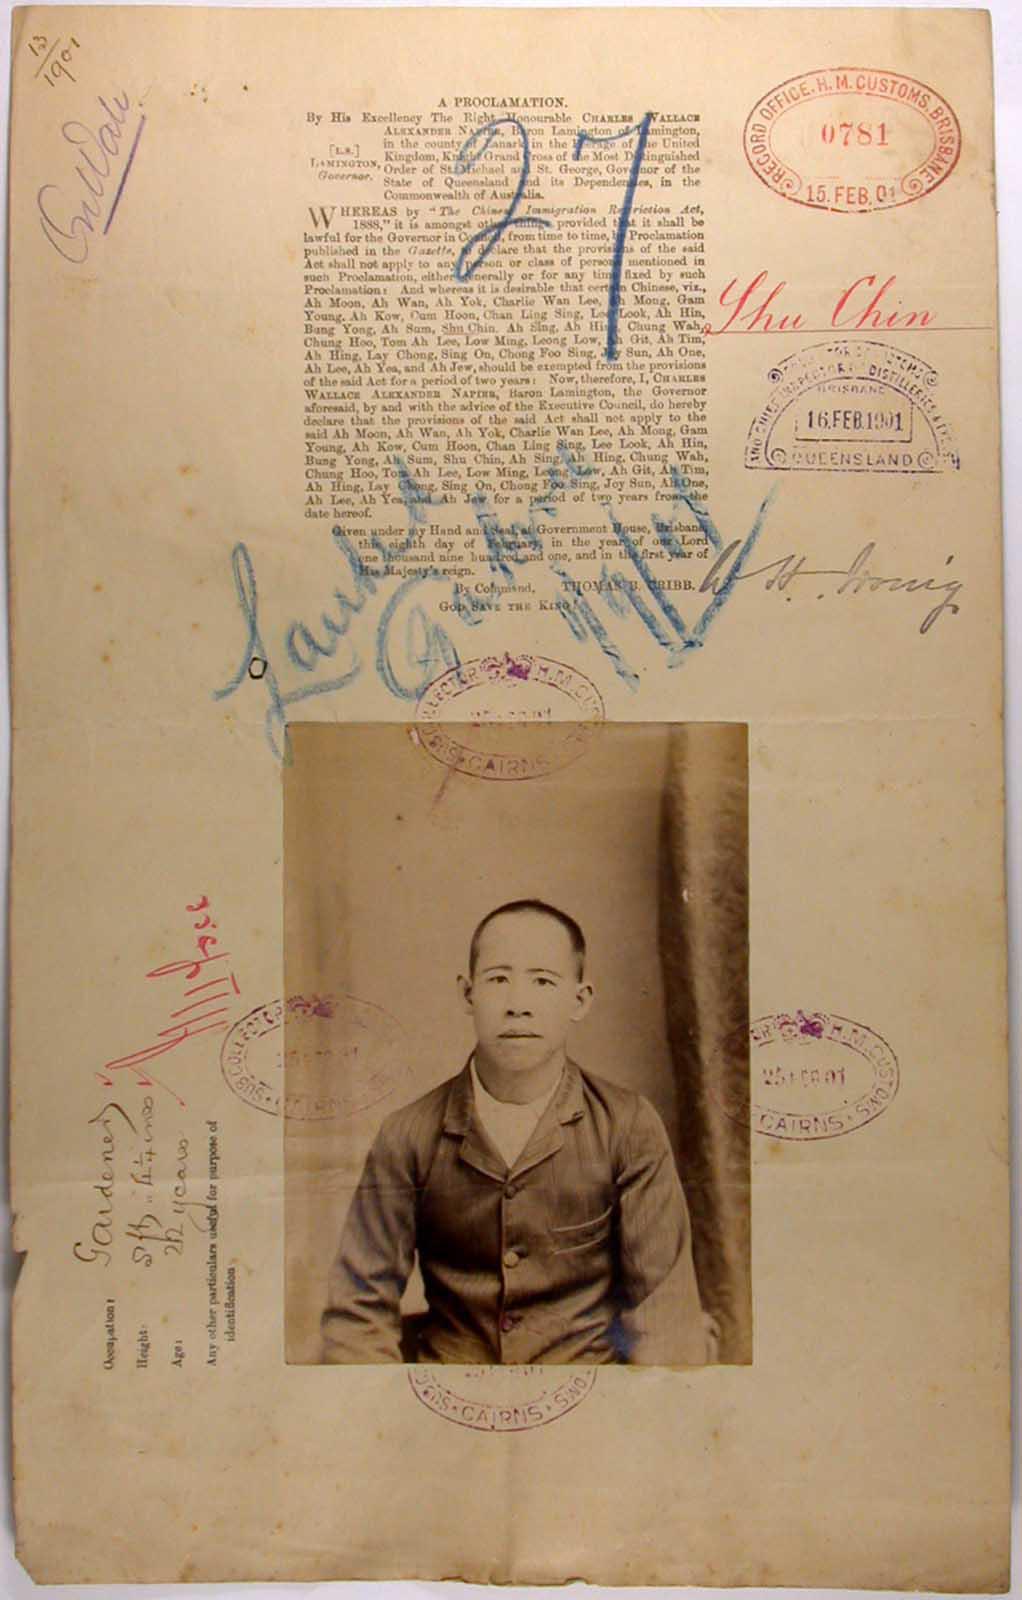 13/1901
A PROCLAMATION.
By His Excellency The Right Honourable CHARLES WALLACE
ALEXANDER NAPIER, Baron Lamington of Lamington,
in the county of Lanark in the Peerage of the United
[L.S.]
Kingdom, Knight Grand Cross of the Most Distinguished
LAMINGTON,
Order of St. Michael and St. George, Governor of the
Governor.
State of Queensland and its Dependencies, in the
Commonwealth of Australia.
WHEREAS by "The Chinese Immigration Restriction Act,
1888," it is amongst other things provided that it shall be
lawful for the Governor in Council, from time to time, by Proclamation
published in the Gazette, to declare that the provisions of the said
Act shall not apply to any person or class of persons mentioned in
such Proclamation, either generally or for any time fixed by such
Proclamation: And whereas it is desirable that certain Chinese, viz.,
Ah Moon, Ah Wan, Ah Yok, Charlie Wan Lee, Ah Mong, Gam
Young, Ah Kow, Cum Hoon, Chan Ling Sing, Lee Look, Ah Hin,
Bung Yong, Ah Sum, Shu Chin, Ah Sing, Ah Hing, Chung Wah,
Chung Hoo, Tom Ah Lee, Low Ming, Leong Low, Ah Git, Ah Tim,
Ah Hing, Lay Chong, Sing On, Chong Foo Sing, Joy Sun, Ah One,
Ah Lee, Ah Yea, and Ah Jew, should be exempted from the provisions
of the said Act for a period of two years: Now, therefore, I, CHARLES
WALLACE ALEXANDER NAPIER, Baron Lamington, the Governor
aforesaid, by and with the advice of the Executive Council, do hereby
declare that the provisions of the said Act shall not apply to the
said Ah Moon, Ah Wan, Ah Yok, Charlie Wan Lee, Ah Mong, Gam
Young, Ah Kow, Cum Hoon, Chan Ling Sing, Lee Look, Ah Hin,
Bung Yong, Ah Sum, Shu Chin, Ah Sing, Ah Hing, Chung Wah,
Chung Hoo, Tom Ah Lee, Low Ming, Leong Low, Ah Git, Ah Tim,
Ah Hing, Lay Chong, Sing On, Chong Foo Sing, Joy Sun, Ah One,
Ah Lee, Ah Yea, and Ah Jew for a period of two years from the
date hereof.
Given under my Hand and Seal, at Government House, Brisbane,
this eighth day of February, in the year of our Lord
one thousand nine hundred and one, and in the first year of
His Majesty's reign.
By Command, THOMAS B. CRIBB.
GOD SAVE THE KING!
27
RECORD OFFICE, H.M. CUSTOMS, BRISBANE
0781
15. FEB. 01
Shu Chin
DISTILLERIES
BRISBANE
16.FEB.1901
QUEENSLAND
W. H. Irving
SUB COLLECTOR H.M. CUSTOMS
CAIRNS
SUB COLLECTOR
25 FEB 01
CAIRNS
H.M. CUSTOMS
25 FEB 01
CAIRNS
CAIRNS
Occupation: Gardener
Height: 5 ft
Age: years
Any other particulars useful for purpose of
identification